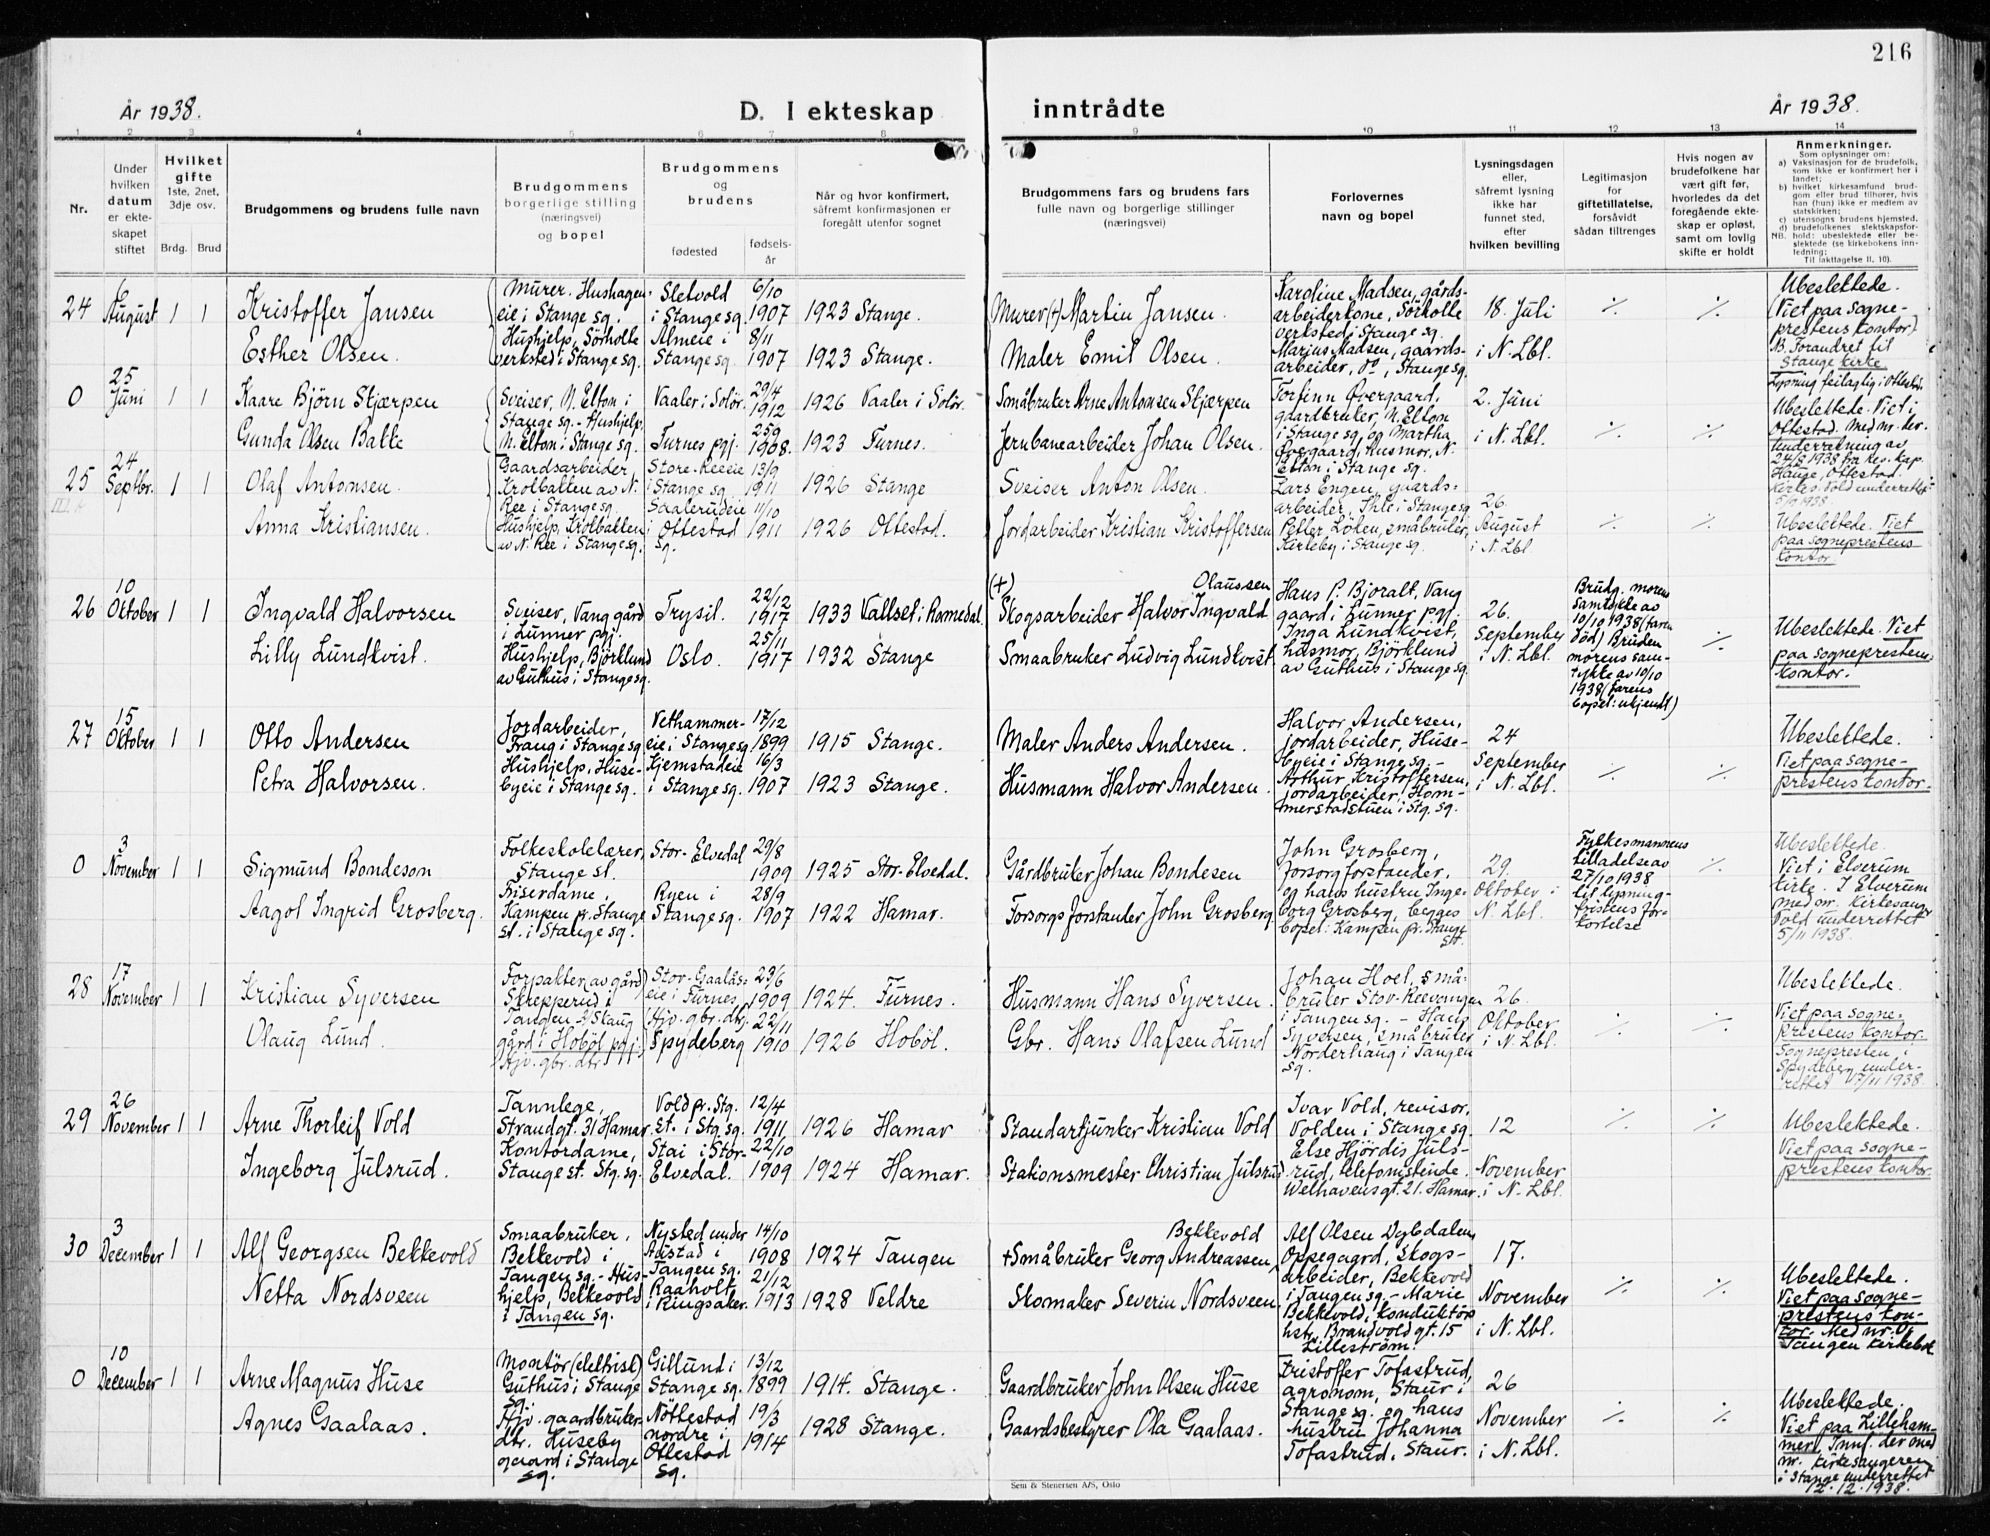 216
År 1938.
D. I ekteskap inntrådte
År 1938.
1 2 3 4 5 6 7 8 9 10 11 12 13 14
Nr.
Under hvilken datum er ekteskapet stiftet
Hvilket gifte
1ste, 2net, 3dje osv.
Brdg. Brud
Brudgommens og brudens fulle navn
Brudgommens borgerlige stilling
(næringsvei)
og bopel
Brudgommens og brudens
fødested
fødselsår
Når og hvor konfirmert,
såfremt konfirmasjonen er foregått utenfor sognet
Brudgommens fars og brudens fars
fulle navn og borgerlige stillinger
(næringsvei)
Forlovernes
navn og bopel
Lysningsdagen
eller,
såfremt lysning
ikke har
funnet sted,
efter
hvilken bevilling
Legitimasjon
for
giftetillatelse,
forsåvidt
sådan tiltrenges
Hvis nogen av
brudefolkene har
vært gift før,
hvorledes da det
foregående ekteskap er opløst,
samt om lovlig
skifte er holdt
Anmerkninger.
Som oplysninger om:
a) Vaksinasjon for de brudefolk, som ikke er konfirmert her i landet;
b) hvilket kirkesamfund brudgom eller brud tilhører, hvis han (hun) ikke er medlem av statskirken;
c) utensogns brudens hjemsted,
d) brudefolkenes slektskapsforhold: ubeslektede eller beslektede (se kirkebokens innledning;
NB. Til iakttagelse II, 10).
24 6 August 1 1 Kristoffer Jansen
Murer. Hushageneie i Stange sg.
Sletvold i Stange sg. 6/10 1907 1923 Stange.
Murer (+) Martin Jansen.
Karoline Madsen, gårdsarbeiderkone, Sörholte verksted i Stange sg.
18. Juli i N. Lbl. ·/· ·/·
Ubeslektede. (Viet paa sogneprestens kontor) NB. Forandret til Stange kirke
Esther Olsen.
Hushjelp, Sörholte verksted i Stange sg.
Almeie i Stange sg. 8/11 1907 1923 Stange.
Maler Emil Olsen.
Marius Madsen, gaardsarbeider, do, Stange sg.
0 25 Juni 1 1 Kaare Björn Skjærpen
Sveiser, N. Elton i Stange sg. - Hushjelp,
Vaaler i Solör. 29/4 1912 1926 Vaaler i Solör.
Småbruker Arne Antonsen Skjærpen
Torfinn Övergaard, gaardbruker, N. Elton i Stange sg, og Martha Övergaard, husmor, N. Elton i Stange sg.
2. Juni i N. Lbl. ·/· ·/·
Lysning feilaglig i Ottestad.
Ubeslektede. Viet i Ottestad. Med nr. der. Underretning av 24/6 1938 fra res. kap. Hauge, Ottestad.
Gunda Olsen Bakke
N. Elton i Stange sg. Furnes pgj. 25/9 1908. 1923 Furnes.
Jernbanearbeider Johan Olsen.
25 24 Septbr. 1 1 Olaf Antonsen.
Gaardsarbeider, Krolbakken av N. Ree i Stange sg.
Store-Reeeie i Stange sg 13/9 1911 1926 Stange
Sveiser Anton Olsen.
Lars Engen, gaardsarbeider, Ihle i Stange sg
26. August i N. Lbl ·/· ·/·
Ubeslektede. Viet paa sogneprestens kontor
Anna Kristiansen.
Hushjelp, Krolbakken av N. Ree i Stange sg.
Saalerudeie i Ottestad sg. 11/10 1911 1926 Ottestad.
Jordarbeider Kristian Kristoffersen
Petter Löten, småbruker, Kirkeby i Stange sg.
26 10 Oktober 1 1 Ingvald Halvorsen
Sveiser, Vang gård i Lunner pgj.
Trysil. 22/12 1917 1933 Vallset i Romedal.
(+) Skogsarbeider Halvor Ingvald Olaussen
Hans P. Bjoralt, Vang gaard i Lunner pgj.
26. September i N. Lbl.
Brudg. morens samtykke av 10/10 1938 (faren död) Bruden morens samtykke av 10/10 1938 (farens bopel: ukjendt) ·/·
Ubeslektede. Viet paa sogneprestens kontor.
Lilly Lundkvist.
Hushjelp, Björklund av Guthus i Stange sg.
Oslo. 25/11 1917 1932 Stange
Smaabruker Ludvig Lundkvist
Inga Lundkvist, husmor, Björklund av Guthus i Stange sg.
27 15 Oktober 1 1 Otto Andersen
Jordarbeider, Frang i Stange sg
Vethammereie i Stange sg. 17/12 1899 1915 Stange.
Maler Anders Andersen.
Halvor Andersen, jordarbeider, Husebyeie i Stange sg. -
24 September i N. Lbl. ·/· ·/·
Ubeslektede. Viet paa sogneprestens kontor.
Petra Halvorsen.
Hushjelp, Husebyeie i Stange sg.
Kjemstadeie i Stange sg. 16/3 1907 1923 Stange.
Husmann Halvor Andersen.
Arthur Kristoffersen, jordarbeider, Hommerstadstuen i Stg. sg.
0 3 November 1 1 Sigmund Bondeson
Folkeskolelærer, Stange st.
Stor-Elvedal 29/8 1909 1925 Stor-Elvedal.
Gårdbruker Johan Bondesen
John Grosberg, forsorgforstander, og hans hustru Ingeborg Grosberg, begges bopel: Kampen pr. Stange st.
29. Oktober i N. Lbl.
Fylkesmannens tilladelse av 27/10 1938 til lysningfristens forkortelse ·/·
Ubeslektede. Viet i Elverum kirke. I Elverum med nr. Kirkesanger Vold underrettet 5/11 1938.
Aagot Ingrid Grosberg.
Friserdame, Kampen pr. Stange st. i Stange sg.
Ryen i Stange sg. 28/9 1907 1922 Hamar.
Forsorgsforstander John Grosberg
28 17 November 1 1 Kristian Syversen
Forpakter av gård Skrepperud i Tangen
Stor-Gaalåseie i Furnes 23/6 1909 1924. Furnes.
Husmann Hans Syversen.
Johan Hoel, småbruker Stor-Reevangen i Tangen sg. - Hans Syversen, småbruker Norderhaug i Tangen sg.
26. Oktober i N. Lbl. ·/· ·/·
Ubeslektede. Viet paa sogneprestens kontor. Sognepresten i Spydeberg underrettet 17/11 1938
Olaug Lund.
gård i Hoböl pgj. Hjv. gbr. dtr.
Hjv. gbr. dtr. Spydeberg 22/11 1910 1926 Hoböl.
Gbr. Hans Olafsen Lund
29 26 November 1 1 Arne Thorleif Vold
Tannlege, Strandgt. 31 Hamar
Vold pr. Stg. st. i Stg. sg. 12/4 1911 1926 Hamar
Standartjunker Kristian Vold
Ivar Vold, revisor, Volden i Stange sg.
12 November i N. Lbl. ·/· ·/·
Ubeslektede. Viet paa sogneprestens kontor.
Ingeborg Julsrud.
Kontordame, Stange st. Stg. sg.
Stai i Stor-Elvedal. 22/10 1909 1924 Hamar.
Stationsmester Christian Julsrud
Else Hjördis Julsrud, telefonistinde. Welhavensgt. 21. Hamar.
30 3 December 1 1 Alf Georgsen Bekkevold
Smaabruker, Bekkevold i Tangen sg. - Hushjelp, Bekkevold i Tangen sg.
Nysted under Austad i Tangen sg. 14/10 1908 1924 Tangen
+ Småbruker Georg Andreassen Bekkevold
Alf Olsen Dybdalen, Oppegaard, skogsarbeider, Bekkevold i Tangen sg. - Marie Bekkevold, konduktör hstr. Brandvoldgt. 15 Lilleström.
17. November i N. Lbl. ·/· ·/·
Ubeslektede. Viet paa sogneprestens kontor. Med nr. i Tangen kirkebok
Netta Nordsveen
Raaholt i Ringsaker. 21/12 1913 1928 Veldre
Skomaker Severin Nordsveen.
0 10 December 1 1 Arne Magnus Huse
Montör (elektrisk) Guthus i Stange sg.
Gillund i Stange sg. 13/12 1899 1914. Stange.
Gaardbruker John Olsen Huse
Kristoffer Tofastrud, agronom, Staur i Stange sg. og hans hustru Johanna Tofastrud, Staur.
26 November i N. Lbl. ·/· ·/·
Ubeslektede. Viet paa Lillehammer, Innf. der med nr. Kirkesangeren i Stange underrettet 12.12.1938.
Agnes Gaalaas.
Hjv. gaardbrukerdtr. Huseby gaard i Stange sg.
Nöttestad nordre i Ottestad sg. 19/3 1914 1928 Stange.
Gaardsbestyrer Ola Gaalaas.
Sem & Stenersen A/S, Oslo